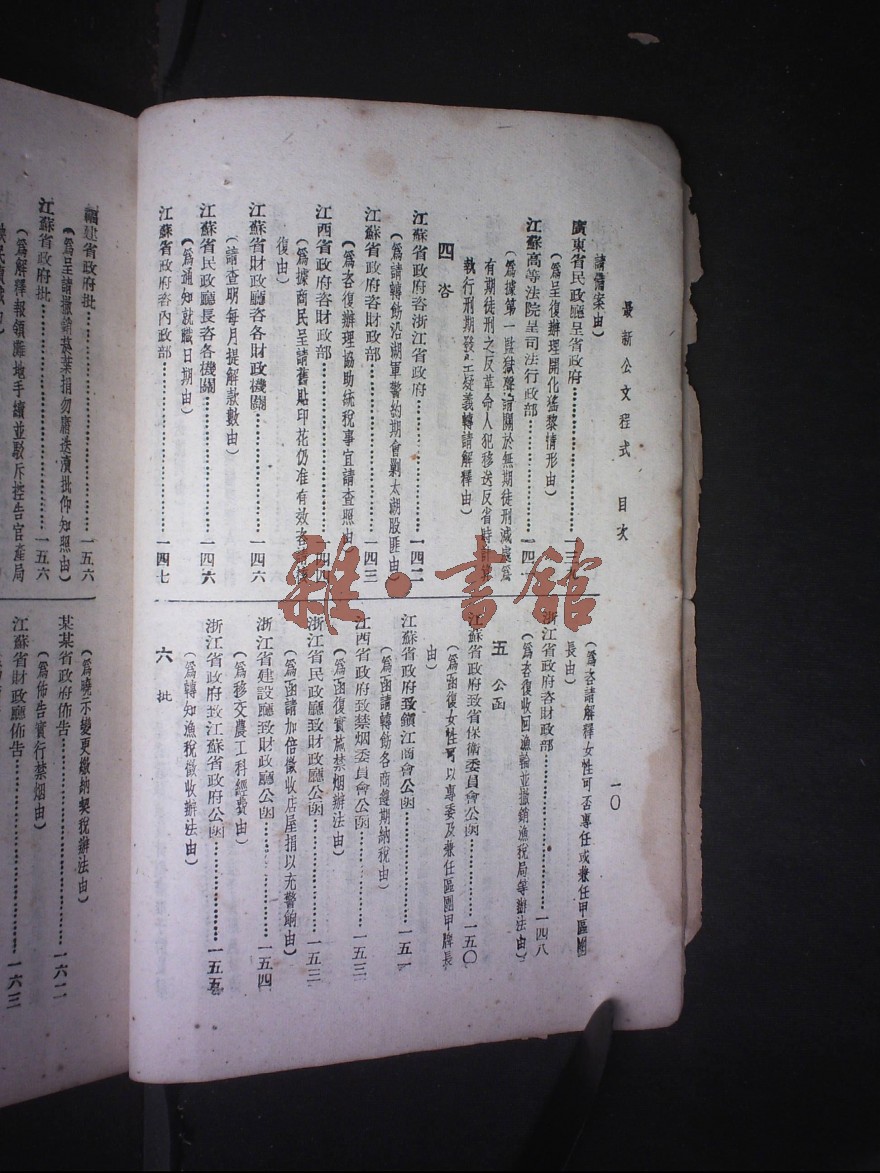 最新公文程式 目次
一〇
請備案由)
廣東省民政廳呈省政府
(爲呈復辦理開化猺黎情形由)
江蘇高等法院呈司法行政部
(爲據第一監獄聲請關於無期徒刑減處爲
有期徒刑之反革命人犯移送反省時計算
執行刑期發生疑義轉請解釋由)
四 咨
江蘇省政府咨浙江省政府………一四二
(爲請轉飭沿湖軍警約期會剿太湖股匪由)
江蘇省政府咨財政部………一四三
(爲咨復辦理協助統稅事宜請查照由)
江西省政府咨財政部………一四四
(爲據商民呈請舊貼印花仍准有效咨請
復由)
江蘇省財政廳咨各財政機關………一四六
(請查明每月提解款數由)
江蘇省民政廳長咨各機關………一四六
(爲通知就職日期由)
江蘇省政府咨內政部………一四七
(爲咨請解釋女性可否專任或兼任甲區團
長由)
浙江省政府咨財政部………一四八
(爲咨復收回漁論並撤銷漁稅局等辦法由)
五 公函
江蘇省政府致省保衛委員會公函………一五〇
(爲函復女性可以專委及兼任區團甲牌長
由)
江蘇省政府致鎭江商會公函………一五一
(爲函請轉飭各商遵期納稅由)
江西省政府致禁烟委員會公函………一五三
(爲函復實施禁烟辦法由)
浙江省民政廳致財政廳公函………一五三
(爲函請加倍徵收店屋捐以充警餉由)
浙江省建設廳致財政廳公函………一五四
(爲移交農工科經費由)
浙江省政府致江蘇省政府公函………一五五
(爲轉知漁稅徵收辦法由)
六 批
福建省政府批………一五六
(爲呈請撤銷菸葉捐勿庸迭瀆批仰知照由)
江蘇省政府批………一五六
(爲解釋報領廱地手續並駁斥控告官產局
某某省政府佈告………一六二
(爲曉示變更繳納契稅辦法由)
江蘇省財政廳佈告………一六三
(爲佈告實行禁烟由)
雜·書館